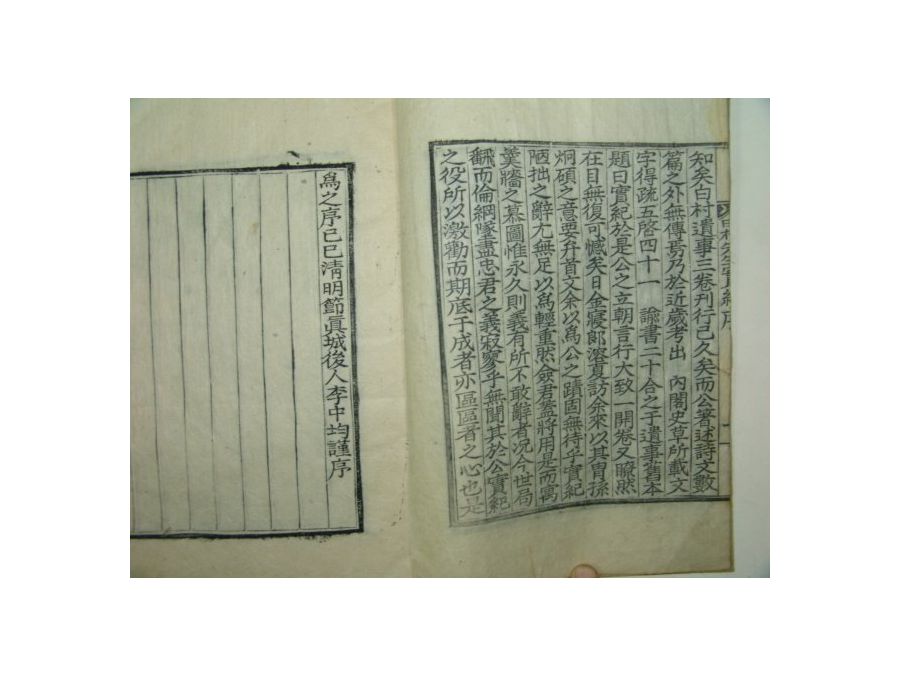 知矣白村遺事三卷刊行已久矣而公著述詩文數
篇之外無傳焉乃於近歲考出　內閣史草所載文
字得疏五啓四十一　諭書二十合之于遺事舊本
題曰實紀於是公之立朝言行大致一開卷又瞭然
在目無復可憾矣日金寢郞溶夏訪余來以其胄孫
炯碩之意要弁首文余以爲公之蹟固無待乎實紀
陋拙之辭尤無足以爲輕重然僉君蓋將用是而寓
羹牆之慕圖惟永久則義有所不敢辭者況今世局
飜而倫綱墜盡忠君之義寂寥乎無聞其於公實紀
之役所以激勸而期底于成者亦區區者之心也是
爲之序己巳淸明節眞城後人李中均謹序